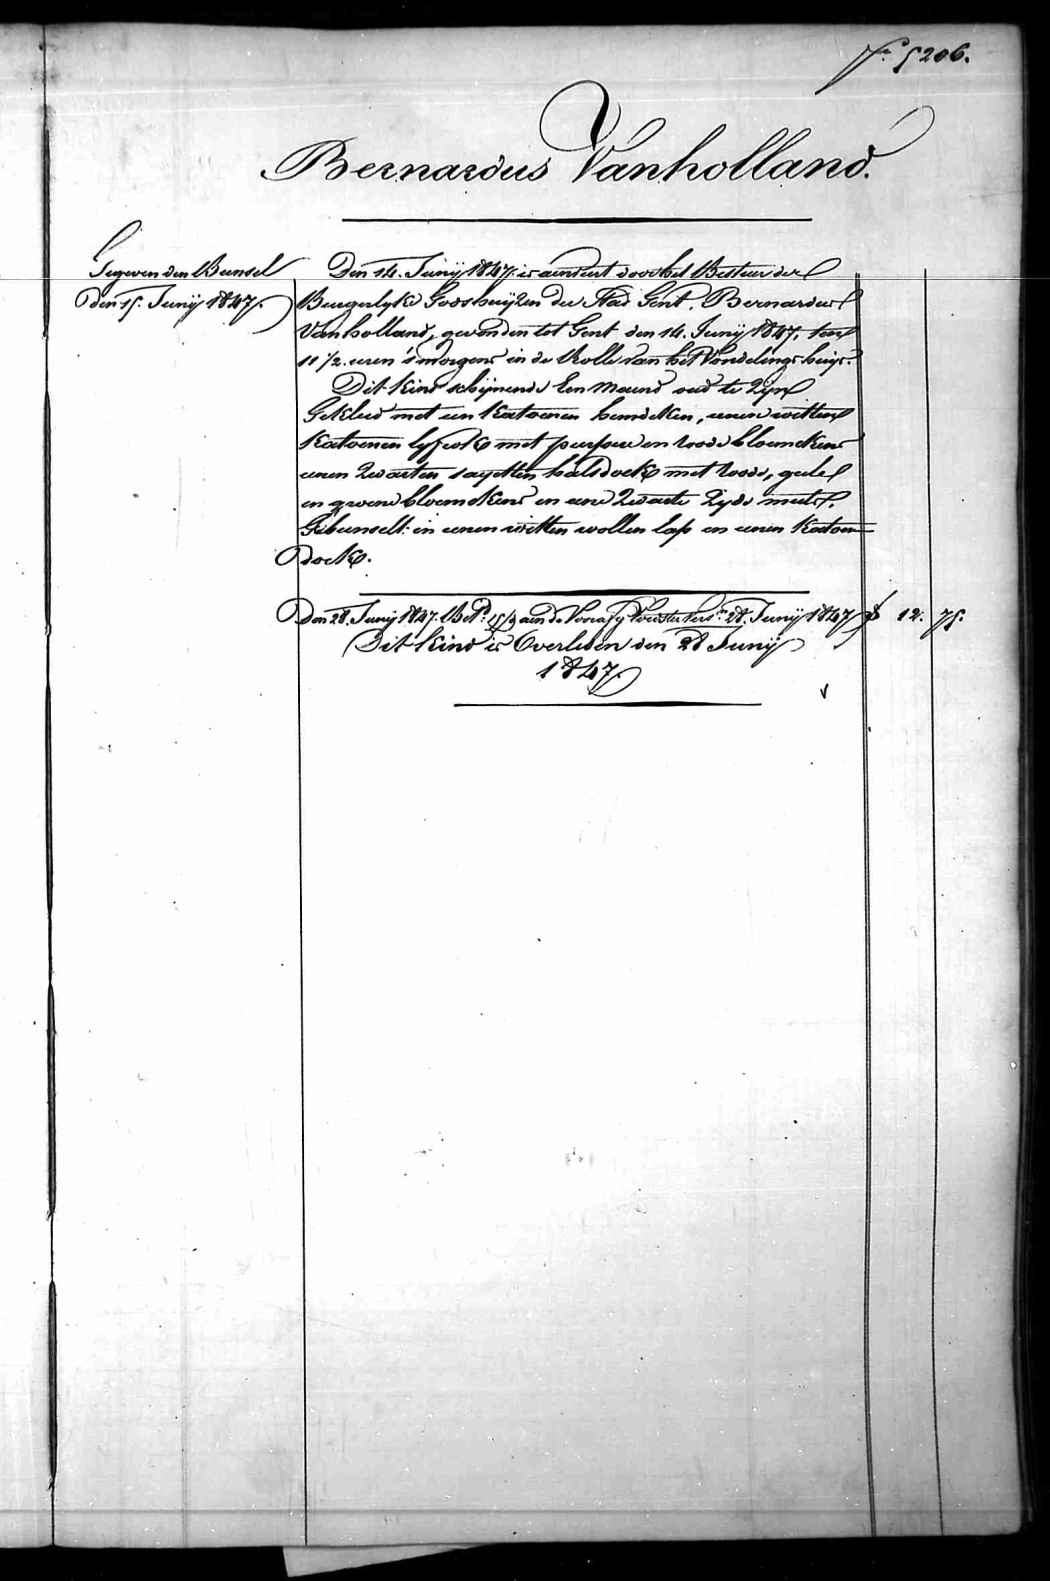 N.º 5206.
Bernardus Vanholland.
Gegeven den Bunsel
den 15. Junij 1847.
Den 14. Junij 1847. is aenveert door het Bestuer der
Burgerlyke Godshuijzen der Stad Gent. Bernardus
Vanholland, gevonden tot Gent den 14. Junij 1847, ten
11 1/2. uren s'morgens in de Rolle van het Vondelings huijs.
Dit Kind schijnende Een Maend oud te Zijn
Gekleed met een Katoenen hemdeken, eenen witten
Katoenen lyfrok met purpere en roode bloemekens
eenen Zwarten sayetten halsdoek met roode, geele
en groene bloemekens en eene Zwarte Zyde muts.
Gebunselt: in eenen witten wollen lap en eenen Katoen
doek.
Den 28. Junij 1847. Bet.d aen de 28. Junij 1847 12. 75.
Dit Kind is Overleden den 28 Junij
1847.